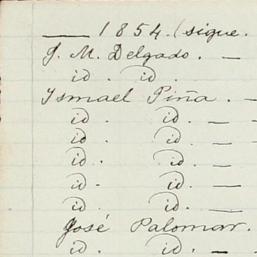 — 1854. (sigue.
J. M. Delgado. —
id. id.
Ismael Piña. —
id. id. —
id. id. —
id. id. —
id. id. —
id. id. —
José Palomar.
id. id. —